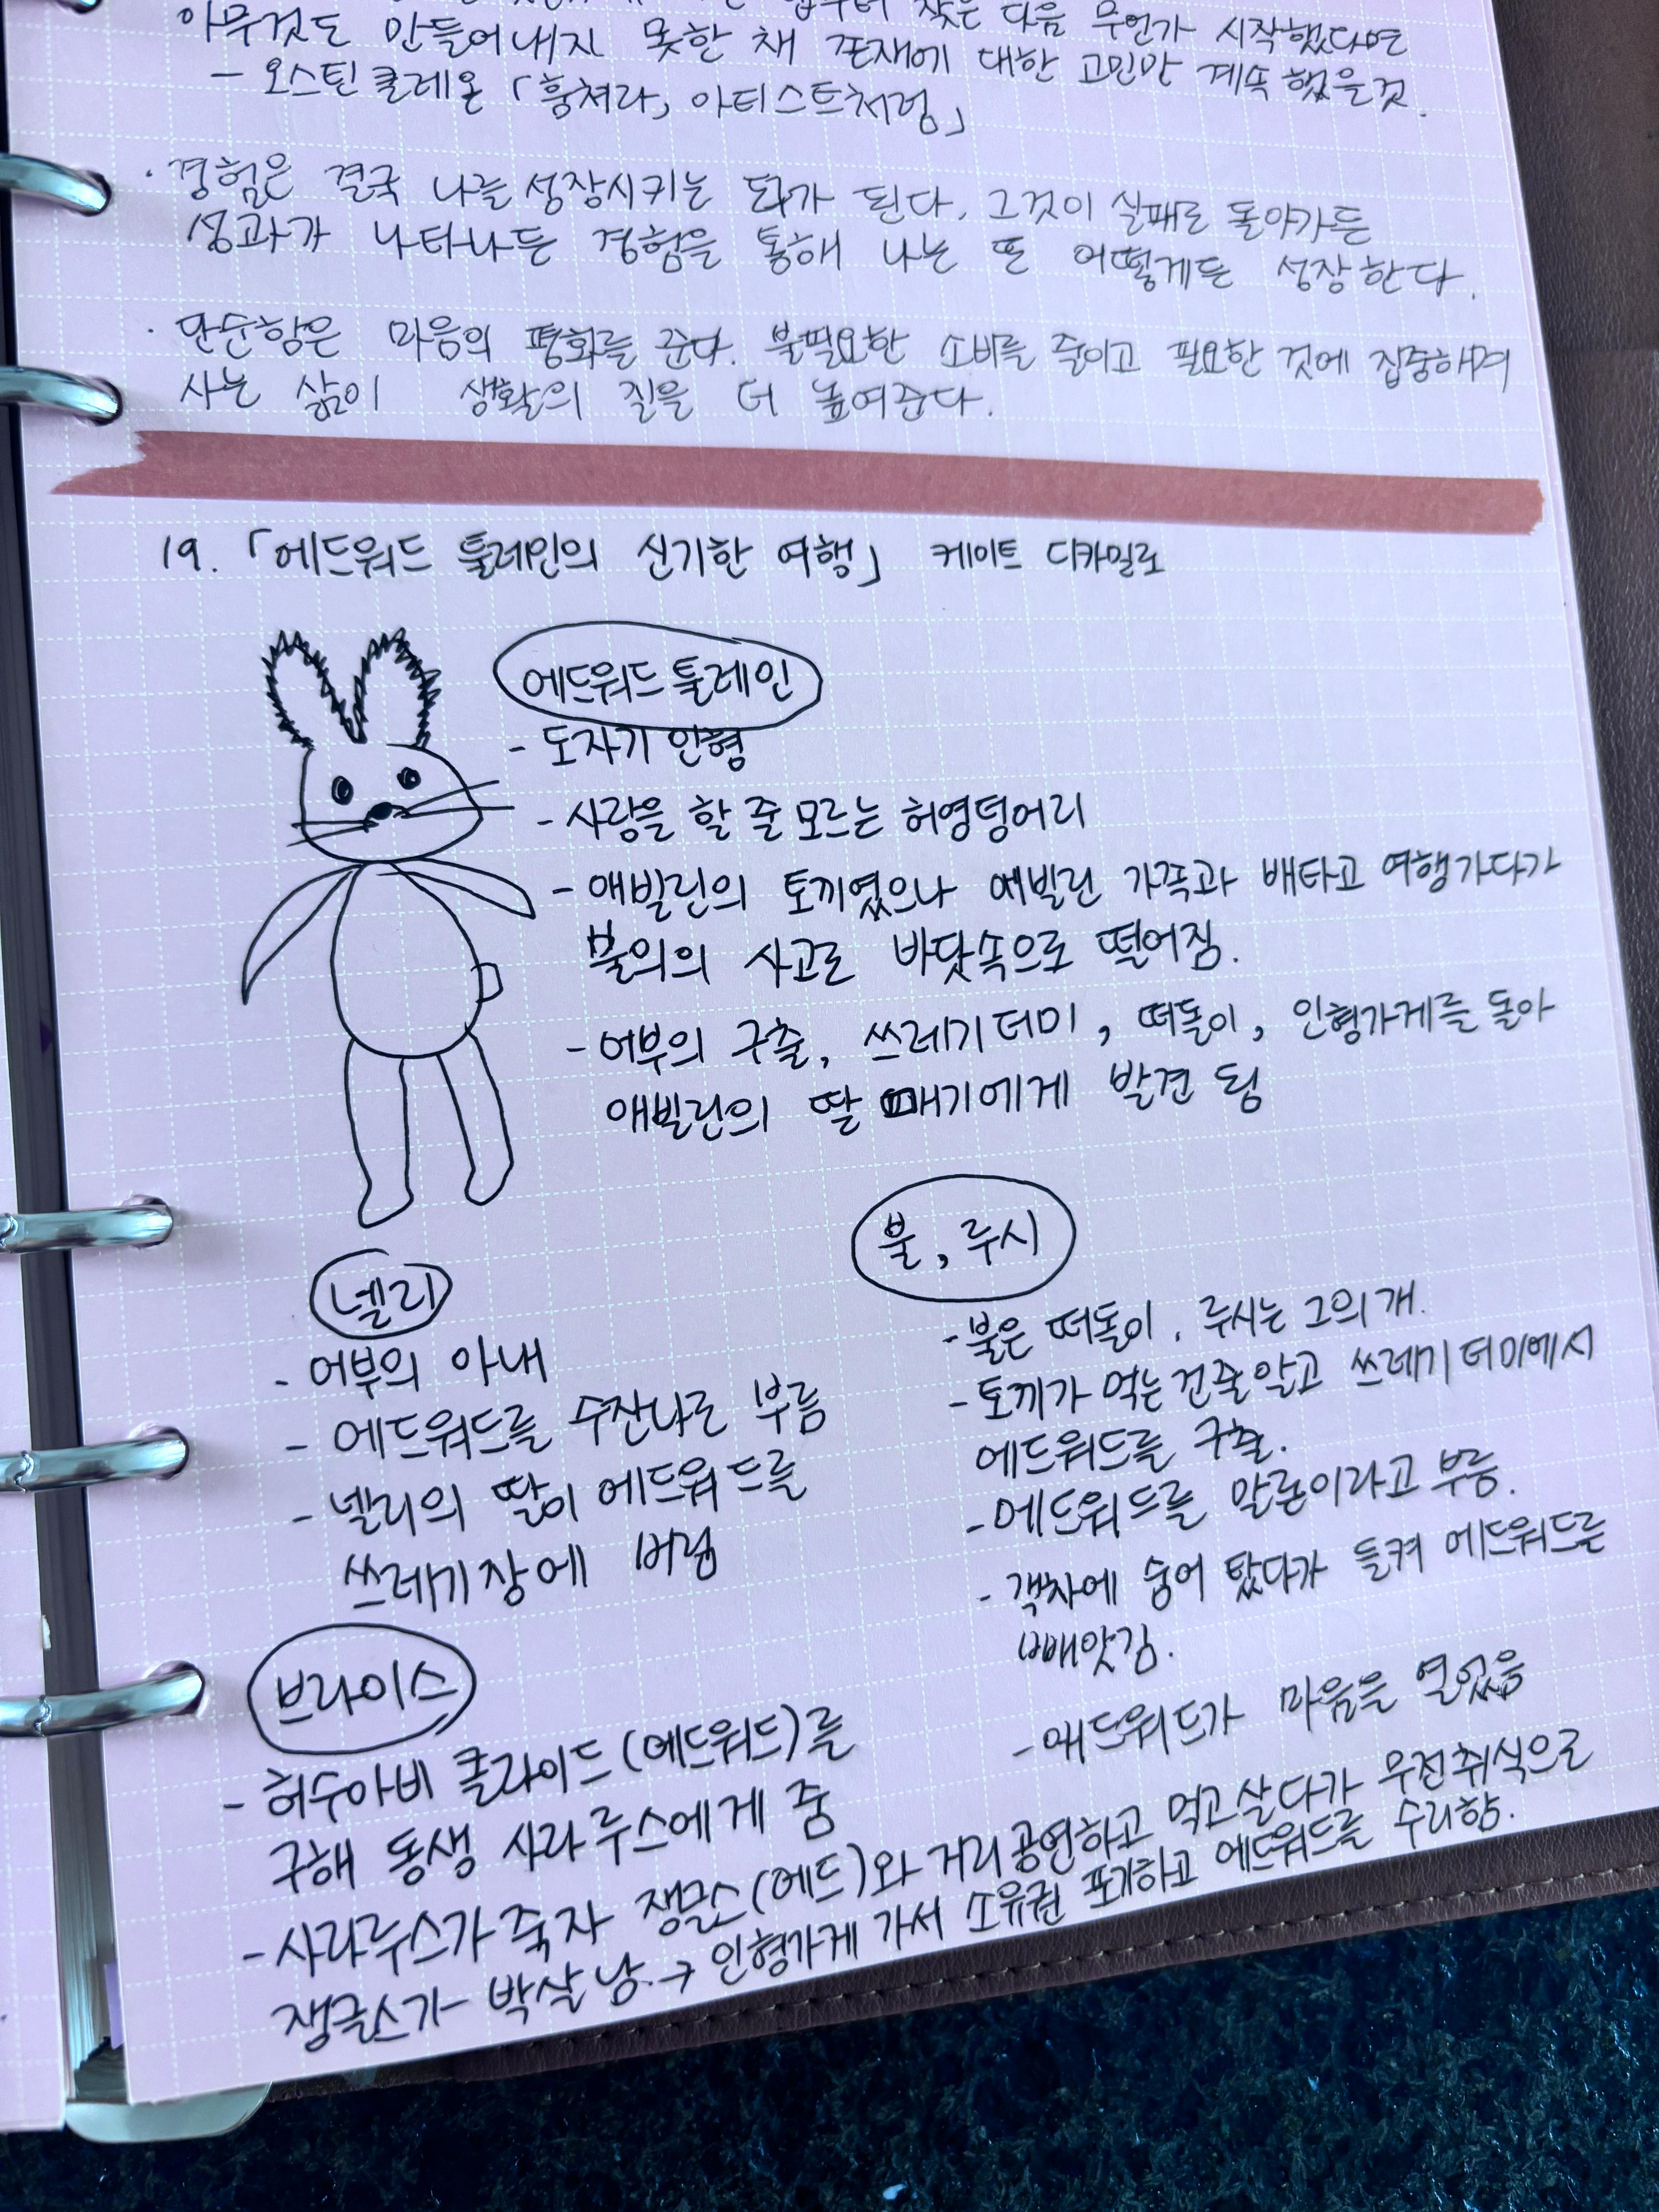 다음 무언가 시작했다면
아무것도 만들어내지 못한 채 존재에 대한 고민만 계속 했을 것.
- 오스틴 클레온 「훔쳐라, 아티스트처럼」
· 경험은 결국 나를 성장시키는 도가 된다. 그것이 실패로 돌아가든
성과가 나타나든 경험을 통해 나는 또 어떻게든 성장한다.
· 단순함은 마음의 평화를 준다. 불필요한 소비를 줄이고 필요한 것에 집중하며
사는 삶이 생활의 질을 더 높여준다.
19. 「에드워드 툴레인의 신기한 여행」 케이트 디카밀로
에드워드 툴레인
- 도자기 인형
- 사랑을 할 줄 모르는 허영덩어리
- 애빌린의 토끼였으나 에빌린 가족과 배타고 여행가다가
불의의 사고로 바닷속으로 떨어짐.
- 어부의 구출, 쓰레기더미, 떠돌이, 인형가게를 돌아
애빌린의 딸 매기에게 발견 됨
넬리
- 어부의 아내
- 에드워드를 수잔나로 부름
- 넬리의 딸이 에드워드를
쓰레기장에 버림
불, 루시
- 불은 떠돌이. 루시는 그의 개.
- 토끼가 먹는건줄알고 쓰레기더미에서
에드워드를 구출.
- 에드워드를 말론이라고 부름.
- 객차에 숨어 탔다가 들켜 에드워드를
빼앗김.
- 애드워드가 마음을 열었음
브라이스
- 허수아비 클라이드(에드워드)를
구해 동생 사라루스에게 줌
- 사라루스가 죽자 쟁글스(에드)와 거리공연하고 먹고살다가 무전취식으로
쟁글스가 박살남. → 인형가게 가서 소유권 포기하고 에드워드를 수리함.